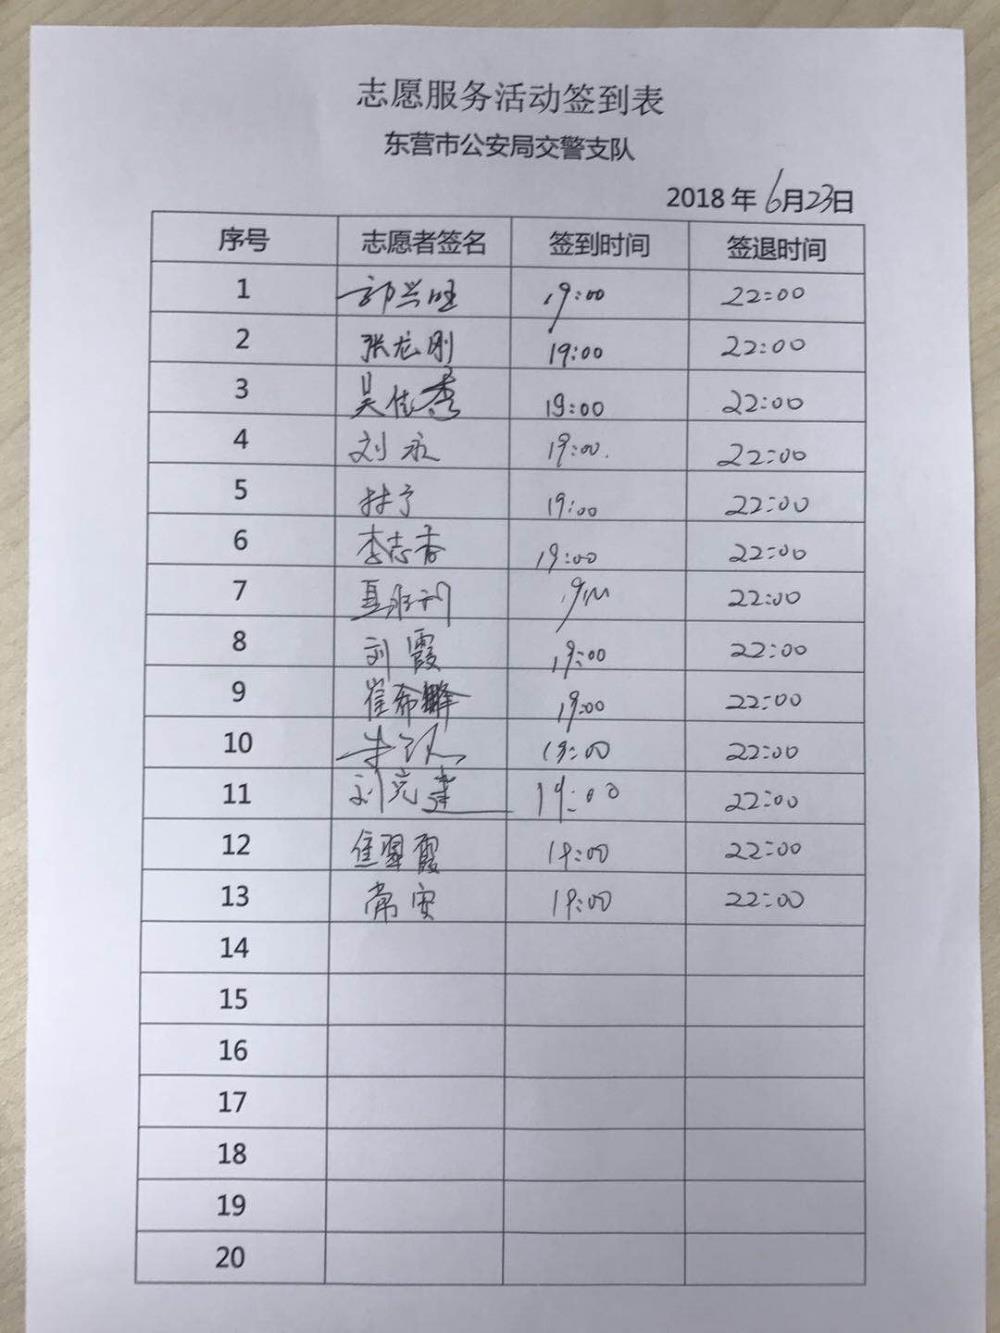 志愿服务活动签到表
东营市公安局交警支队
2018 年 6月23日
序号 志愿者签名 签到时间 签退时间
1 郭兴旺 19:00 22:00
2 张龙刚 19:00 22:00
3 吴佳秀 19:00 22:00
4 刘永 19:00. 22:00
5 19:00 22:00
6 李志香 19:00 22:00
7 22:00
8 刘霞 19:00 22:00
9 崔希 19:00 22:00
10 19:00 22:00
11 刘完建 19:00 22:00
12 焦翠霞 19:00 22:00
13 常安 19:00 22:00
14
15
16
17
18
19
20